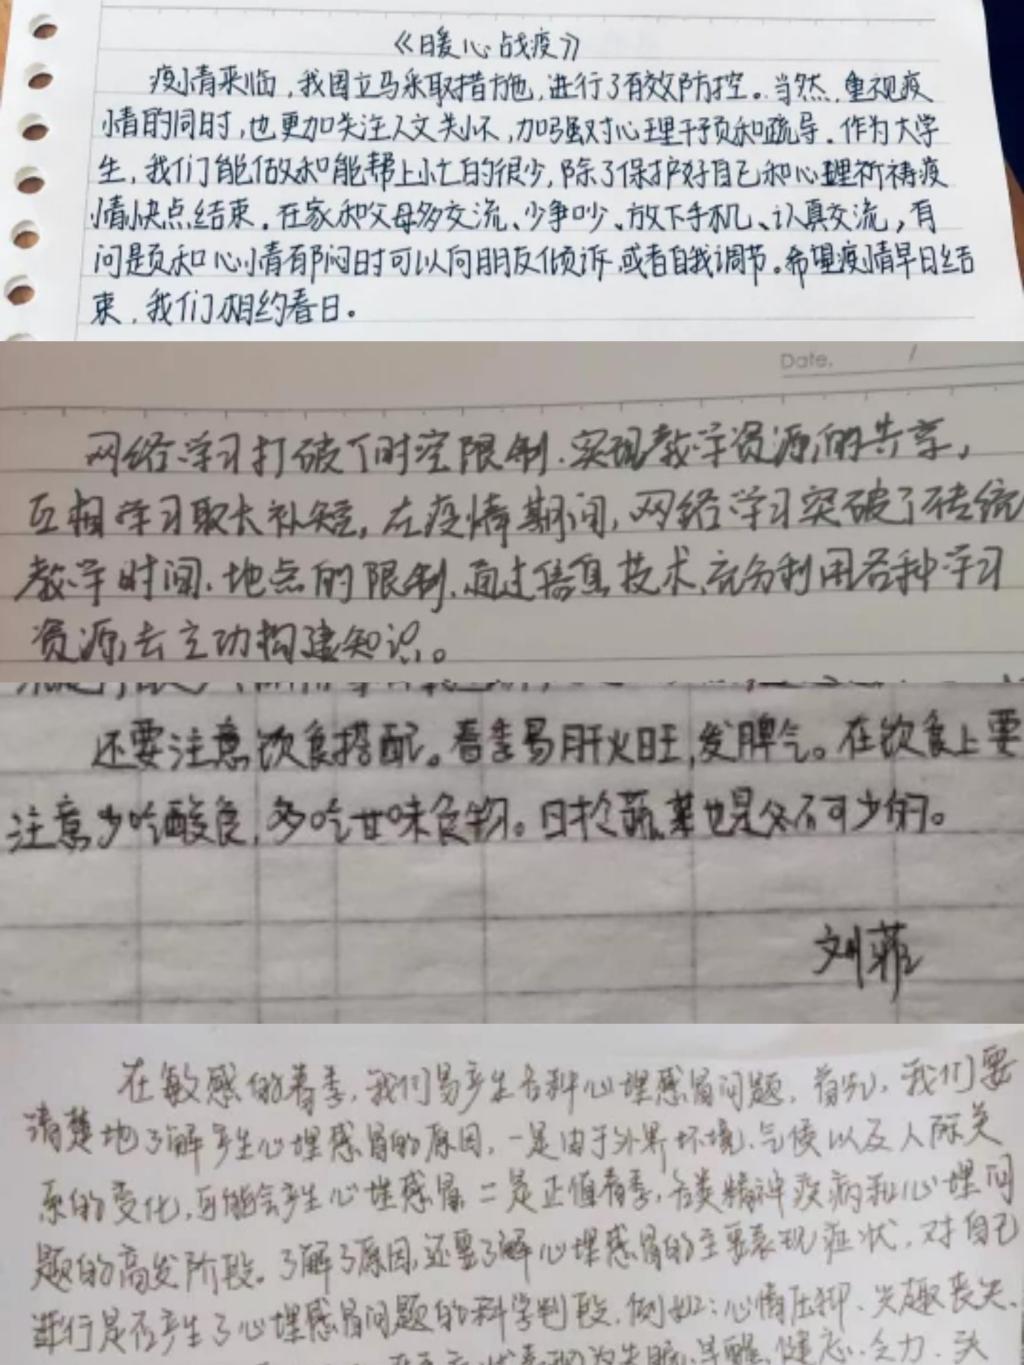 《暖心战疫》
疫情来临，我国立马采取措施，进行了有效防控。当然，重视疫
情的同时，也更加关注人文关怀，加强对心理干预和疏导。作为大学
生，我们能做和能帮上忙的很少，除了保护好自己和心理祈祷疫
情快点结束。在家和父母多交流、少争吵、放下手机、认真交流，有
问是页和心情郁闷时可以向朋友倾诉，或者自我调节。希望疫情早日结
束，我们相约春日。
Date.
网络学习打破了时空限制，实现教学资源的共享，
互相学习取长补短，在疫情期间，网络学习突破了传统
教学时间、地点的限制，通过信息技术，充分利用各种学习
资源，去主动构建知识。
还要注意饮食搭配。春季易肝火旺，发脾气。在饮食上要
注意少吃酸食，多吃甘味食物。日于蔬菜也是必不可少的。
刘菲
在敏感的春季，我们易产生各种心理感冒问题，首先，我们要
清楚地了解产生心理感冒的原因，一是由于外界环境、气候以及人际关
系的变化，可能会产生心理感冒 二是正值春季，各类精神疾病和心理问
题的高发阶段。了解了原因，还要了解心理感冒的主要表现症状，对自己
进行是否产生了心理感冒问题的科学判段，例如：心情压抑、兴趣丧失、
表现为失眠、早醒、健忘、乏力、头